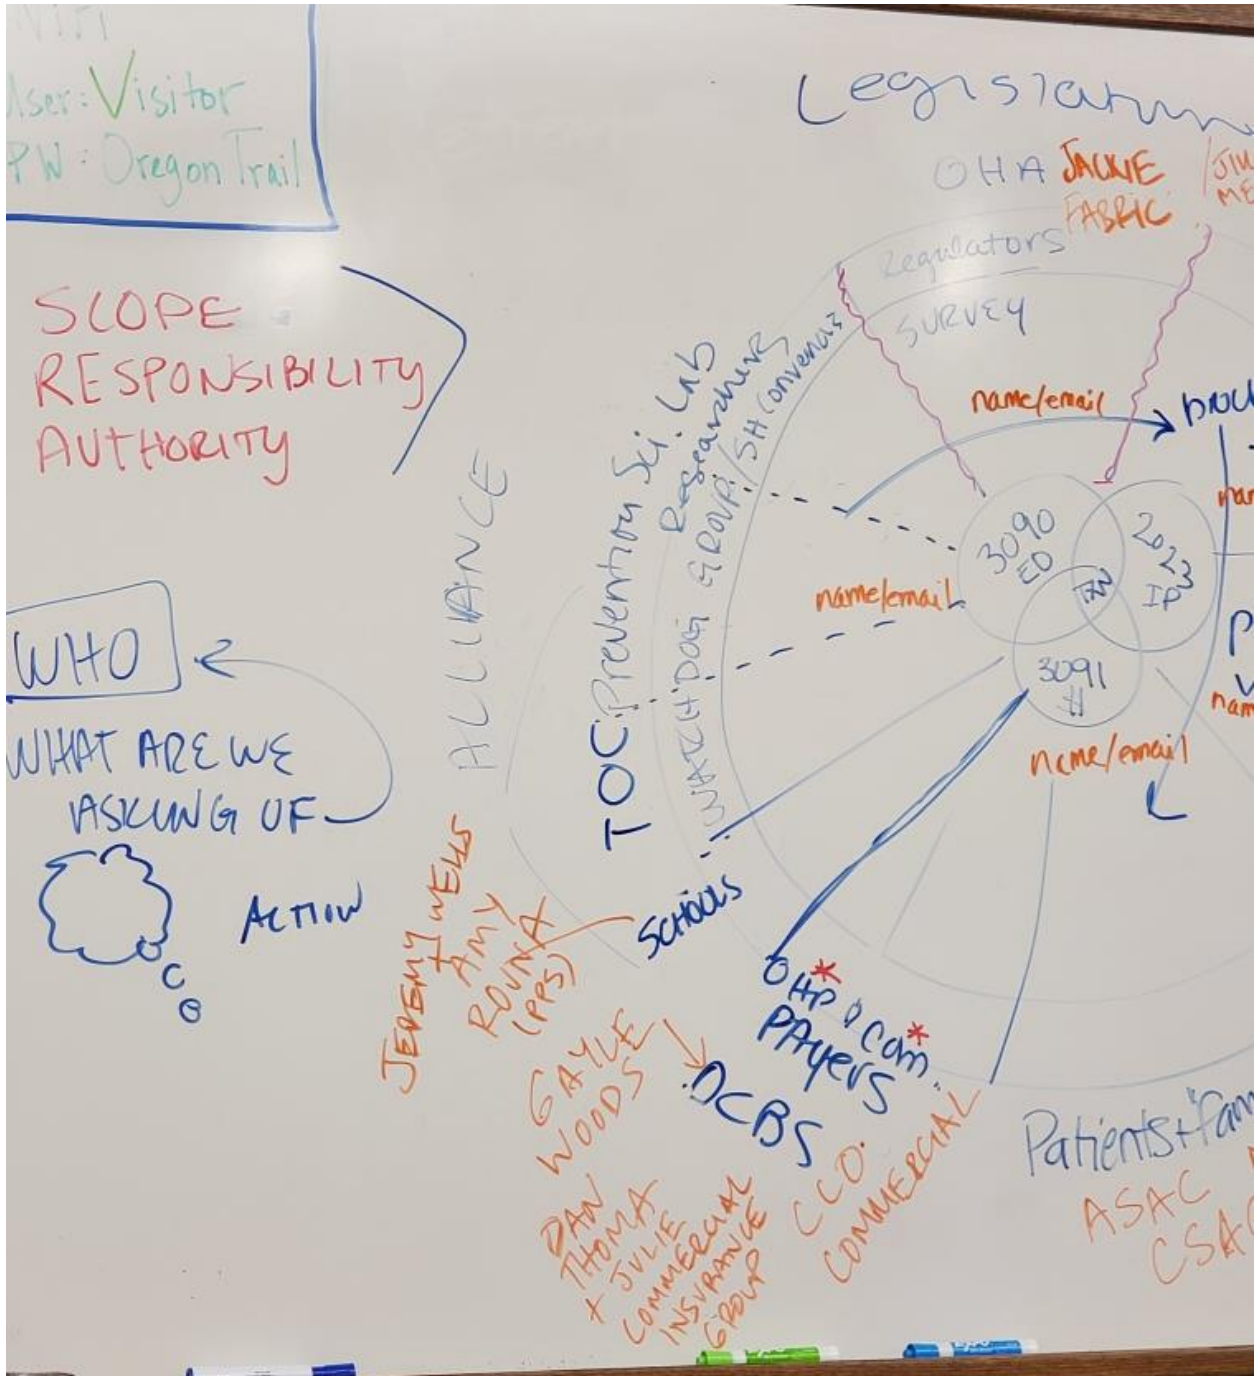 WiFi
User: Visitor
PW: Oregon Trail
SCOPE
RESPONSIBILITY
AUTHORITY
WHO
WHAT ARE WE
ASKING OF
ACTION
Legislature
OHA JACKIE
FABRIC
Regulators
SURVEY
name/email
3090
ED
2023
IP
3091
H
name/email
name/email
ALLIANCE
TOC Prevention Sci. Lab
Researchers
WATCHDOG GROUP/SH Conveners
SCHOOLS
JEREMY WELLS
+ AMY
ROVNA
(PPS)
GAYLE
WOODS
DCBS
DAN
THOMA
+ JULIE
COMMERCIAL
INSURANCE
GROUP
OHP* & Com.*
PAyers
CCO.
COMMERCIAL
Patients + Fam
ASAC
CSAC